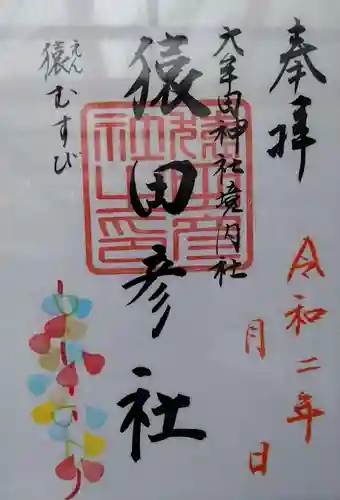 奉拝
令和二年
月 日
大牟田神社境内社
猿田彦社
猿むすび
えん